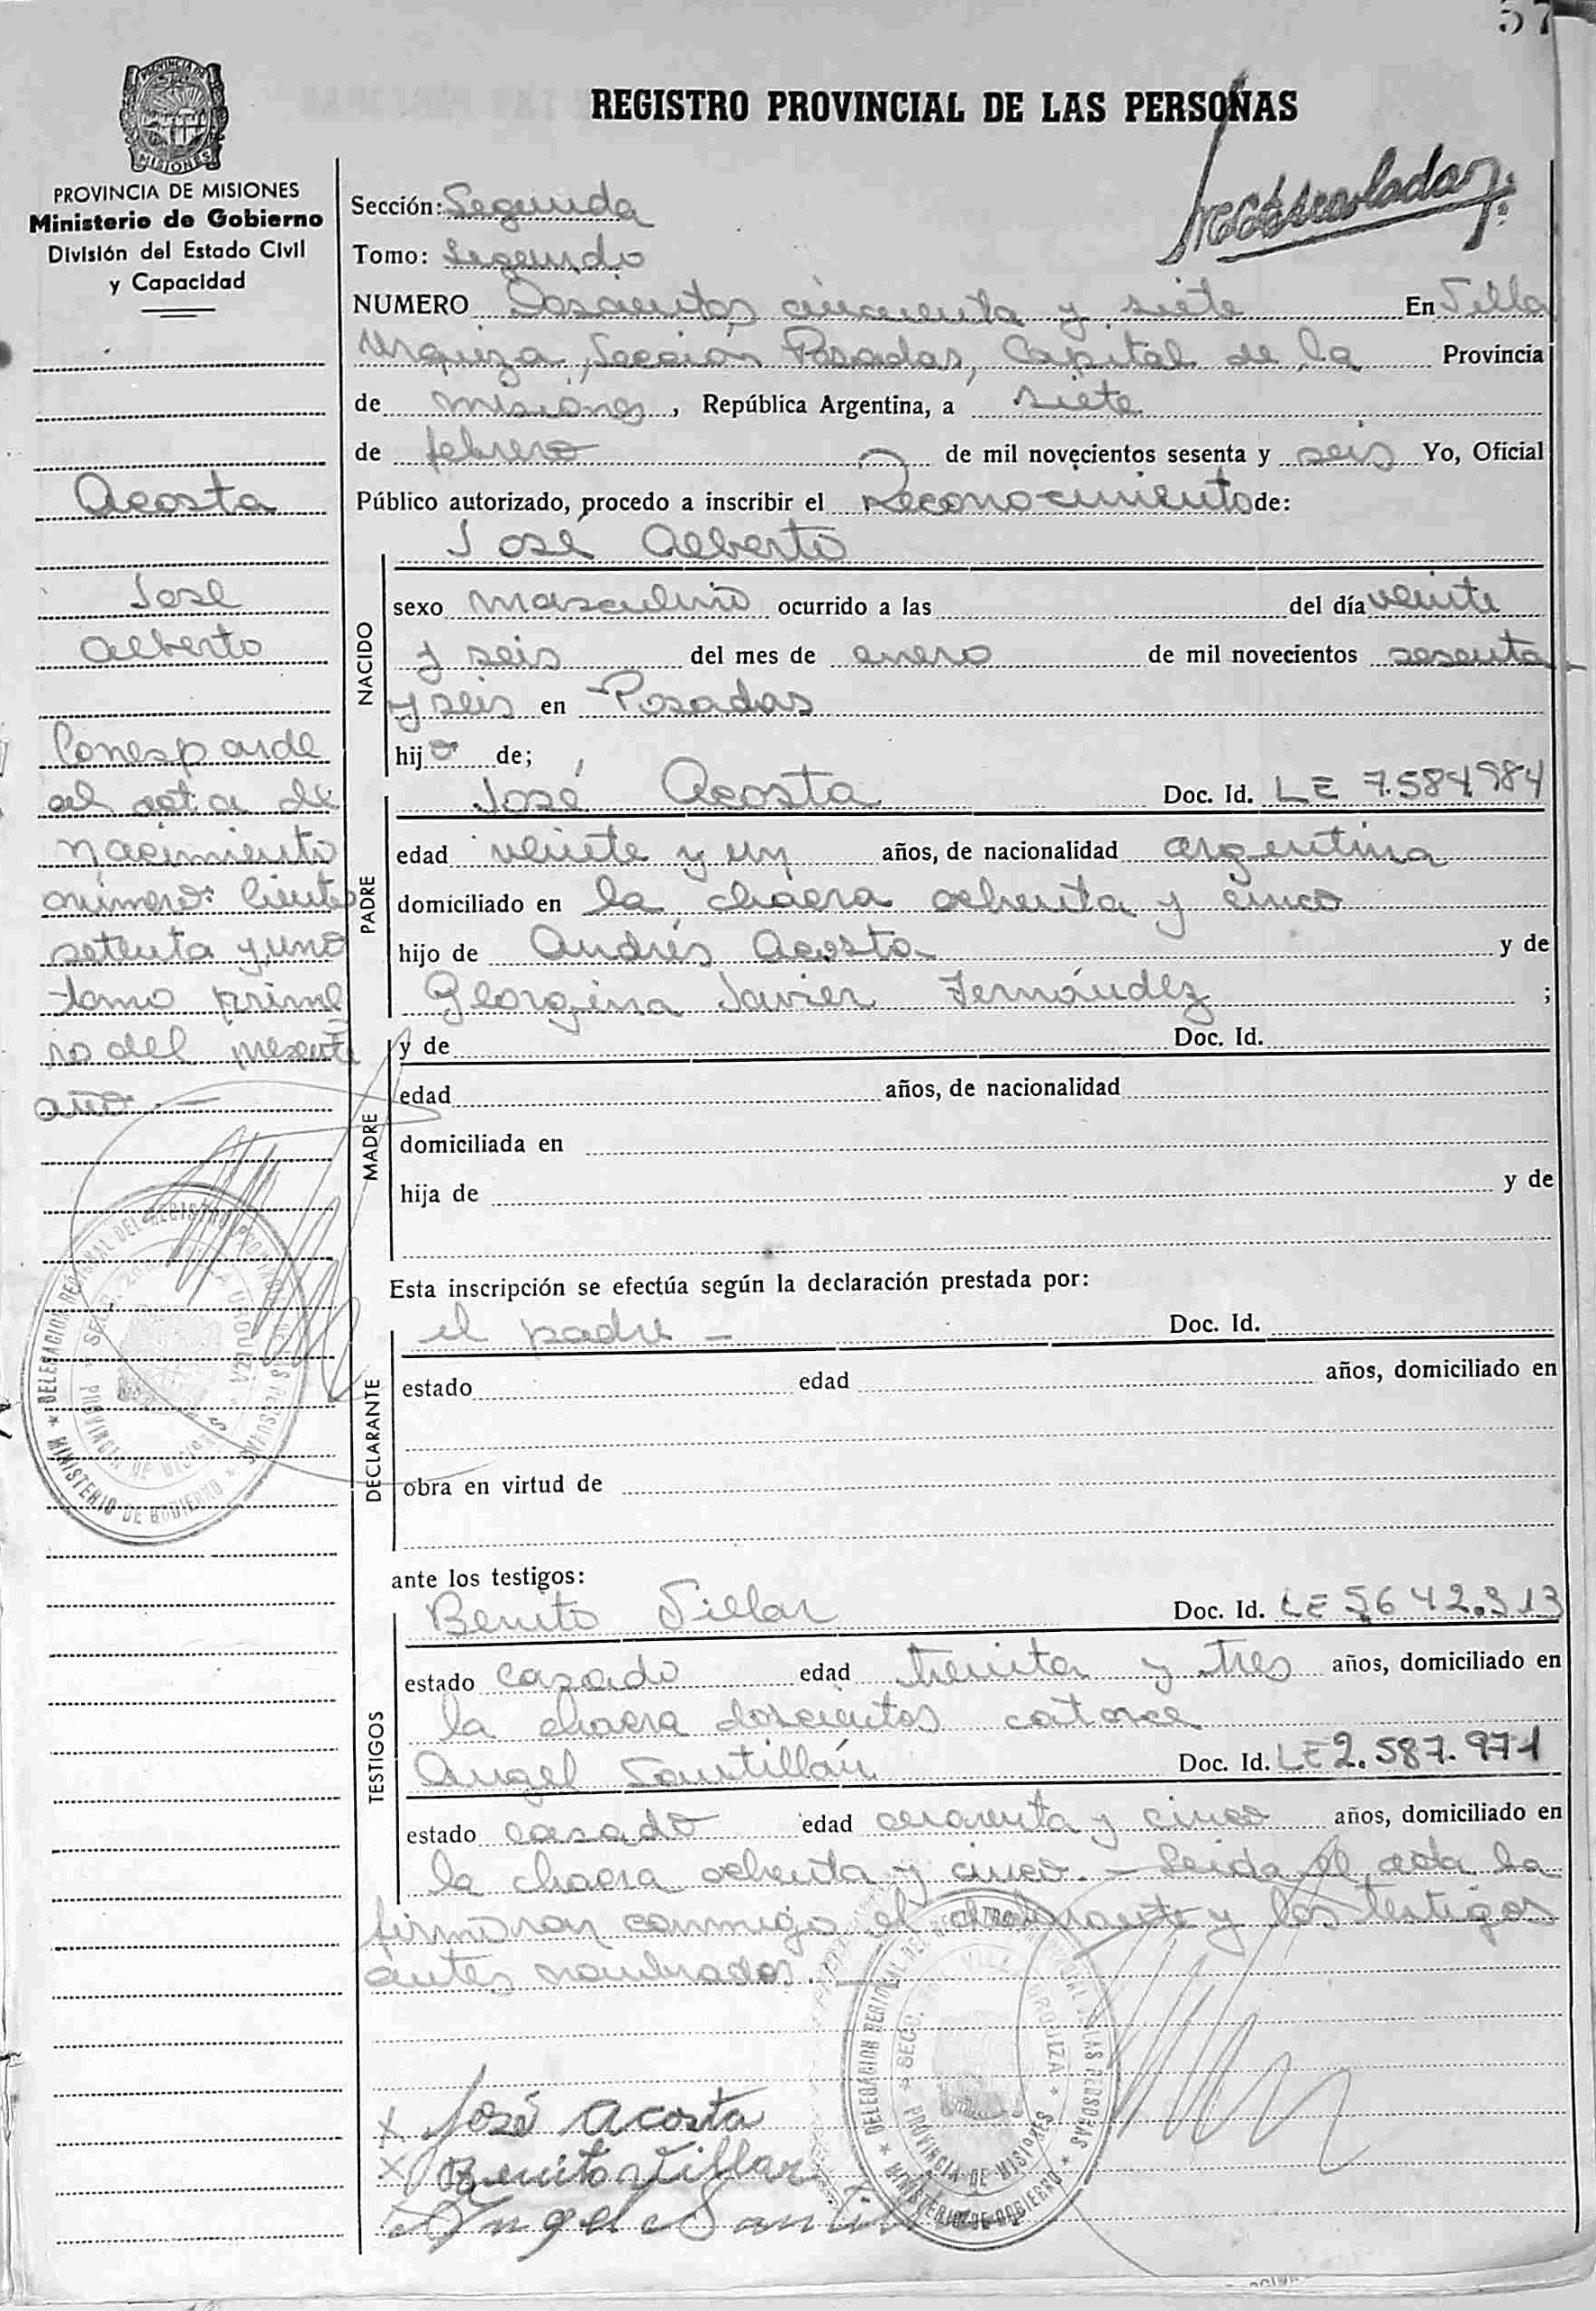 57
REGISTRO PROVINCIAL DE LAS PERSONAS
PROVINCIA DE MISIONES
Ministerio de Gobierno
División del Estado Civil
y Capacidad
Acosta
José
Alberto
Corresponde
al acta de
nacimiento
número: ciento
setenta y uno
tomo prime
ro del presente
año.—
Sección: Segunda
Tomo: Segundo
NUMERO Doscientos cincuenta y siete En Villa
Urquiza, Sección Posadas, Capital de la Provincia
de Misiones, República Argentina, a siete
de febrero de mil novecientos sesenta y seis Yo, Oficial
Público autorizado, procedo a inscribir el Reconocimiento de:
José Alberto
NACIDO
sexo masculino ocurrido a las del día veinte
y seis del mes de enero de mil novecientos sesenta
y seis en Posadas
hijo de;
PADRE
José Acosta Doc. Id. LE 7.584984
edad veinte y un años, de nacionalidad argentina
domiciliado en la chacra ochenta y cinco
hijo de Andrés Acosta y de
Georgina Javier Fernández ;
MADRE
y de Doc. Id.
edad años, de nacionalidad
domiciliada en
hija de y de
Esta inscripción se efectúa según la declaración prestada por:
DECLARANTE
el padre — Doc. Id.
estado edad años, domiciliado en
obra en virtud de
ante los testigos:
TESTIGOS
Benito Villar Doc. Id. LE 5.642.313
estado casado edad treinta y tres años, domiciliado en
la chacra doscientos catorce
Angel Santillán Doc. Id. LE 2.587.971
estado casado edad cuarenta y cinco años, domiciliado en
la chacra ochenta y cinco.— Leida el acta la
firmaron conmigo el declarante y los testigos
antes nombrados.—
José Acosta
Benito Villar
Angel Santil
DELEGACION REGIONAL DEL REGISTRO PROVINCIAL DE LAS PERSONAS
MINISTERIO DE GOBIERNO
VILLA URQUIZA
PROVINCIA DE MISIONES